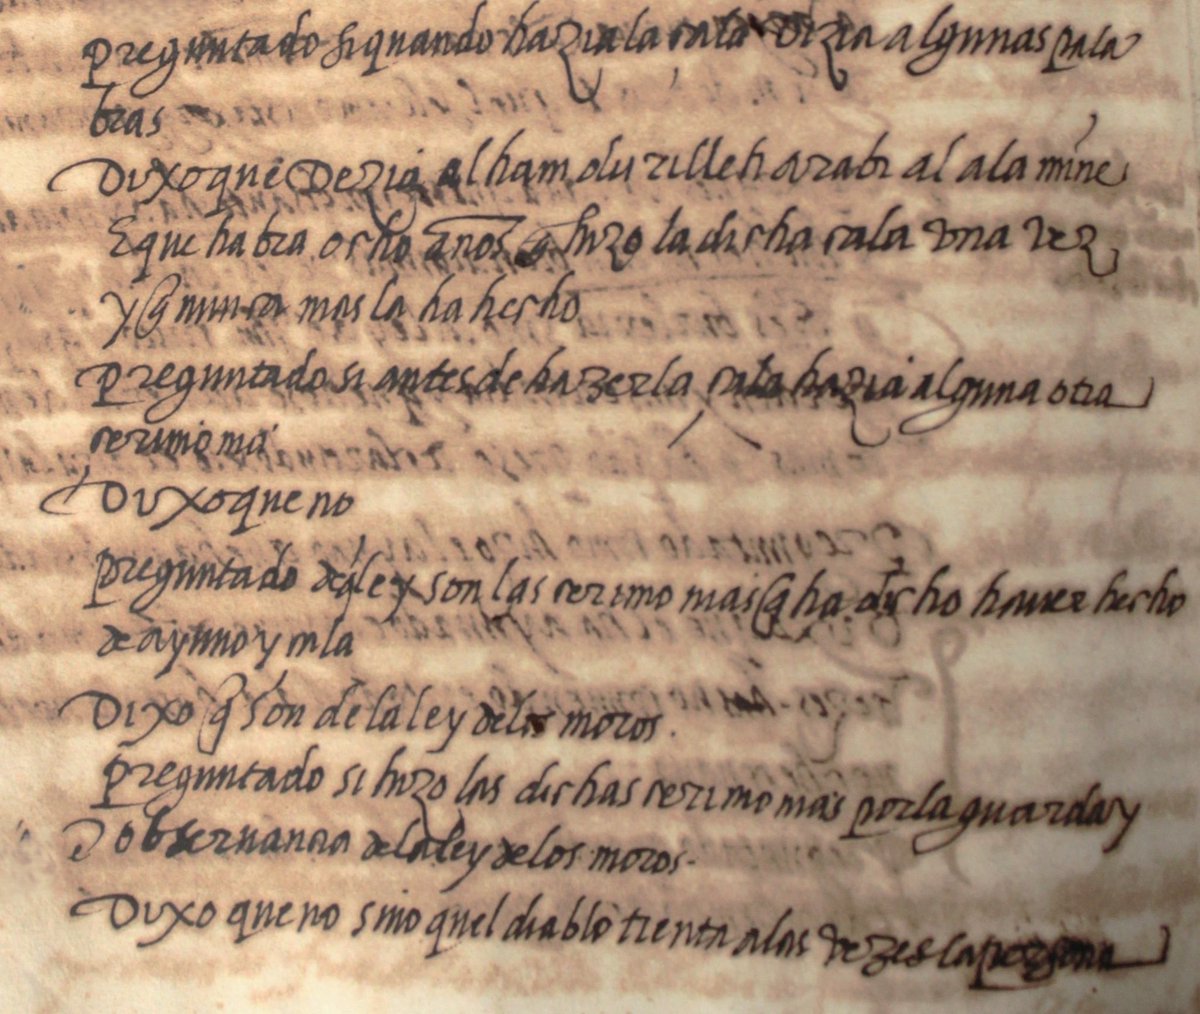 preguntado si quando hazia la çala dezia algunas pala
bras
Dixo que dezia alhamdurilleh arabi al alamine
E que habra ocho años q hizo la dicha çala una vez
y q nunca mas la ha hecho
preguntado si antes de hazer la çala hazia alguna otra
cerimonia
Dixo que no
preguntado de q ley son las cerimonias q ha dicho hauer hecho
de ayuno y çala
Dixo q son de la ley de los moros.
preguntado si hizo las dichas cerimonias por la guarda y
obseruancia de la ley de los moros.
Dixo que no sino quel diablo tienta a las vezes la persona